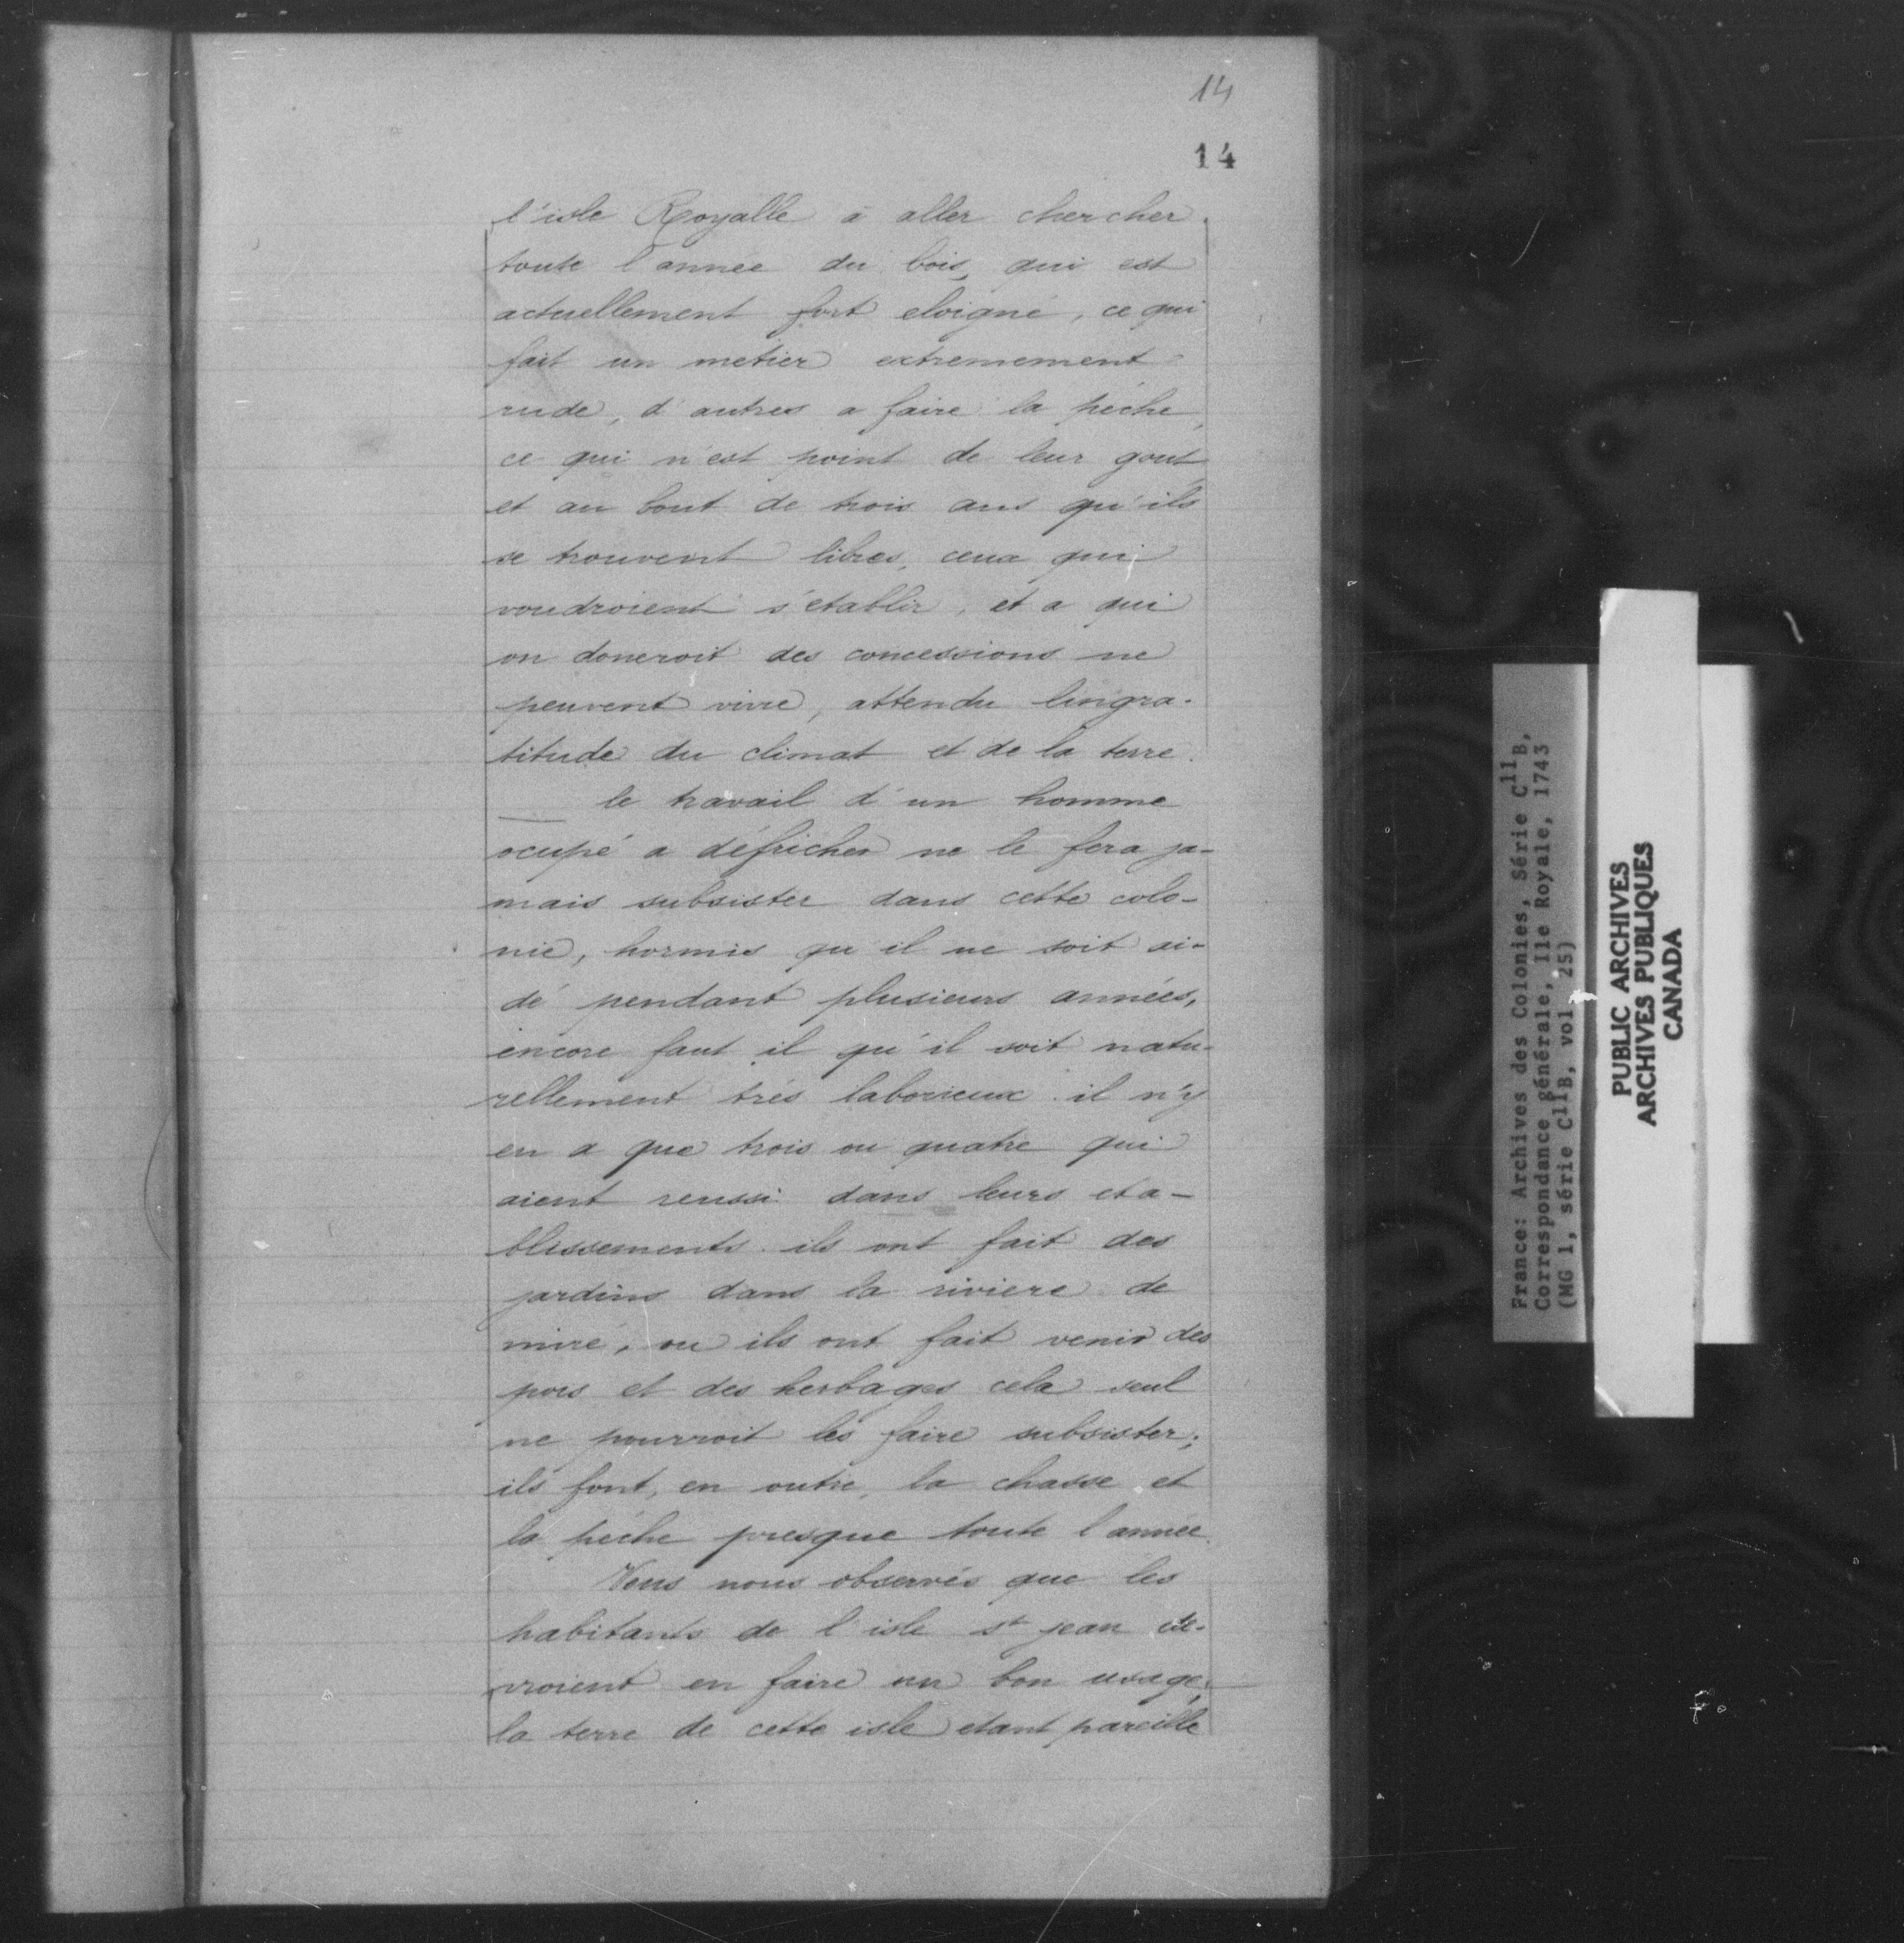 14
14
l'isle Royalle à aller chercher
toute l'année du bois, qui est
actuellement fort eloigné, ce qui
fait un metier extremement
rude, d'autres a faire la pêche,
ce qui n'est point de leur gout,
et au bout de trois ans qu'ils
se trouvent libres, ceux qui
voudroient s'etablir, et a qui
on doneroit des concessions ne
peuvent vivre, attendu lingra-
titude du climat et de la terre.
le travail d'un homme
ocupé a défricher ne le fera ja-
mais subsister dans cette colo-
nie, hormis qu'il ne soit ai-
dé pendant plusieurs années,
encore faut il qu'il soit natu-
rellement très laborieux. il n'y
en a que trois ou quatre qui
aient reussi dans leurs eta-
blissements. ils ont fait des
jardins dans la riviere de
miré, ou ils ont fait venir des
pois et des herbages cela seul
ne pourroit les faire subsister;
ils font, en outre, la chasse et
la pêche presque toute l'année.
Vous nous observés que les
habitants de l'isle st jean de-
vroient en faire un bon usage,
la terre de cette isle etant pareille
France: Archives des Colonies, Série C11B,
Correspondance générale, Ile Royale, 1743
(MG 1, série C11B, vol. 25)
PUBLIC ARCHIVES
ARCHIVES PUBLIQUES
CANADA